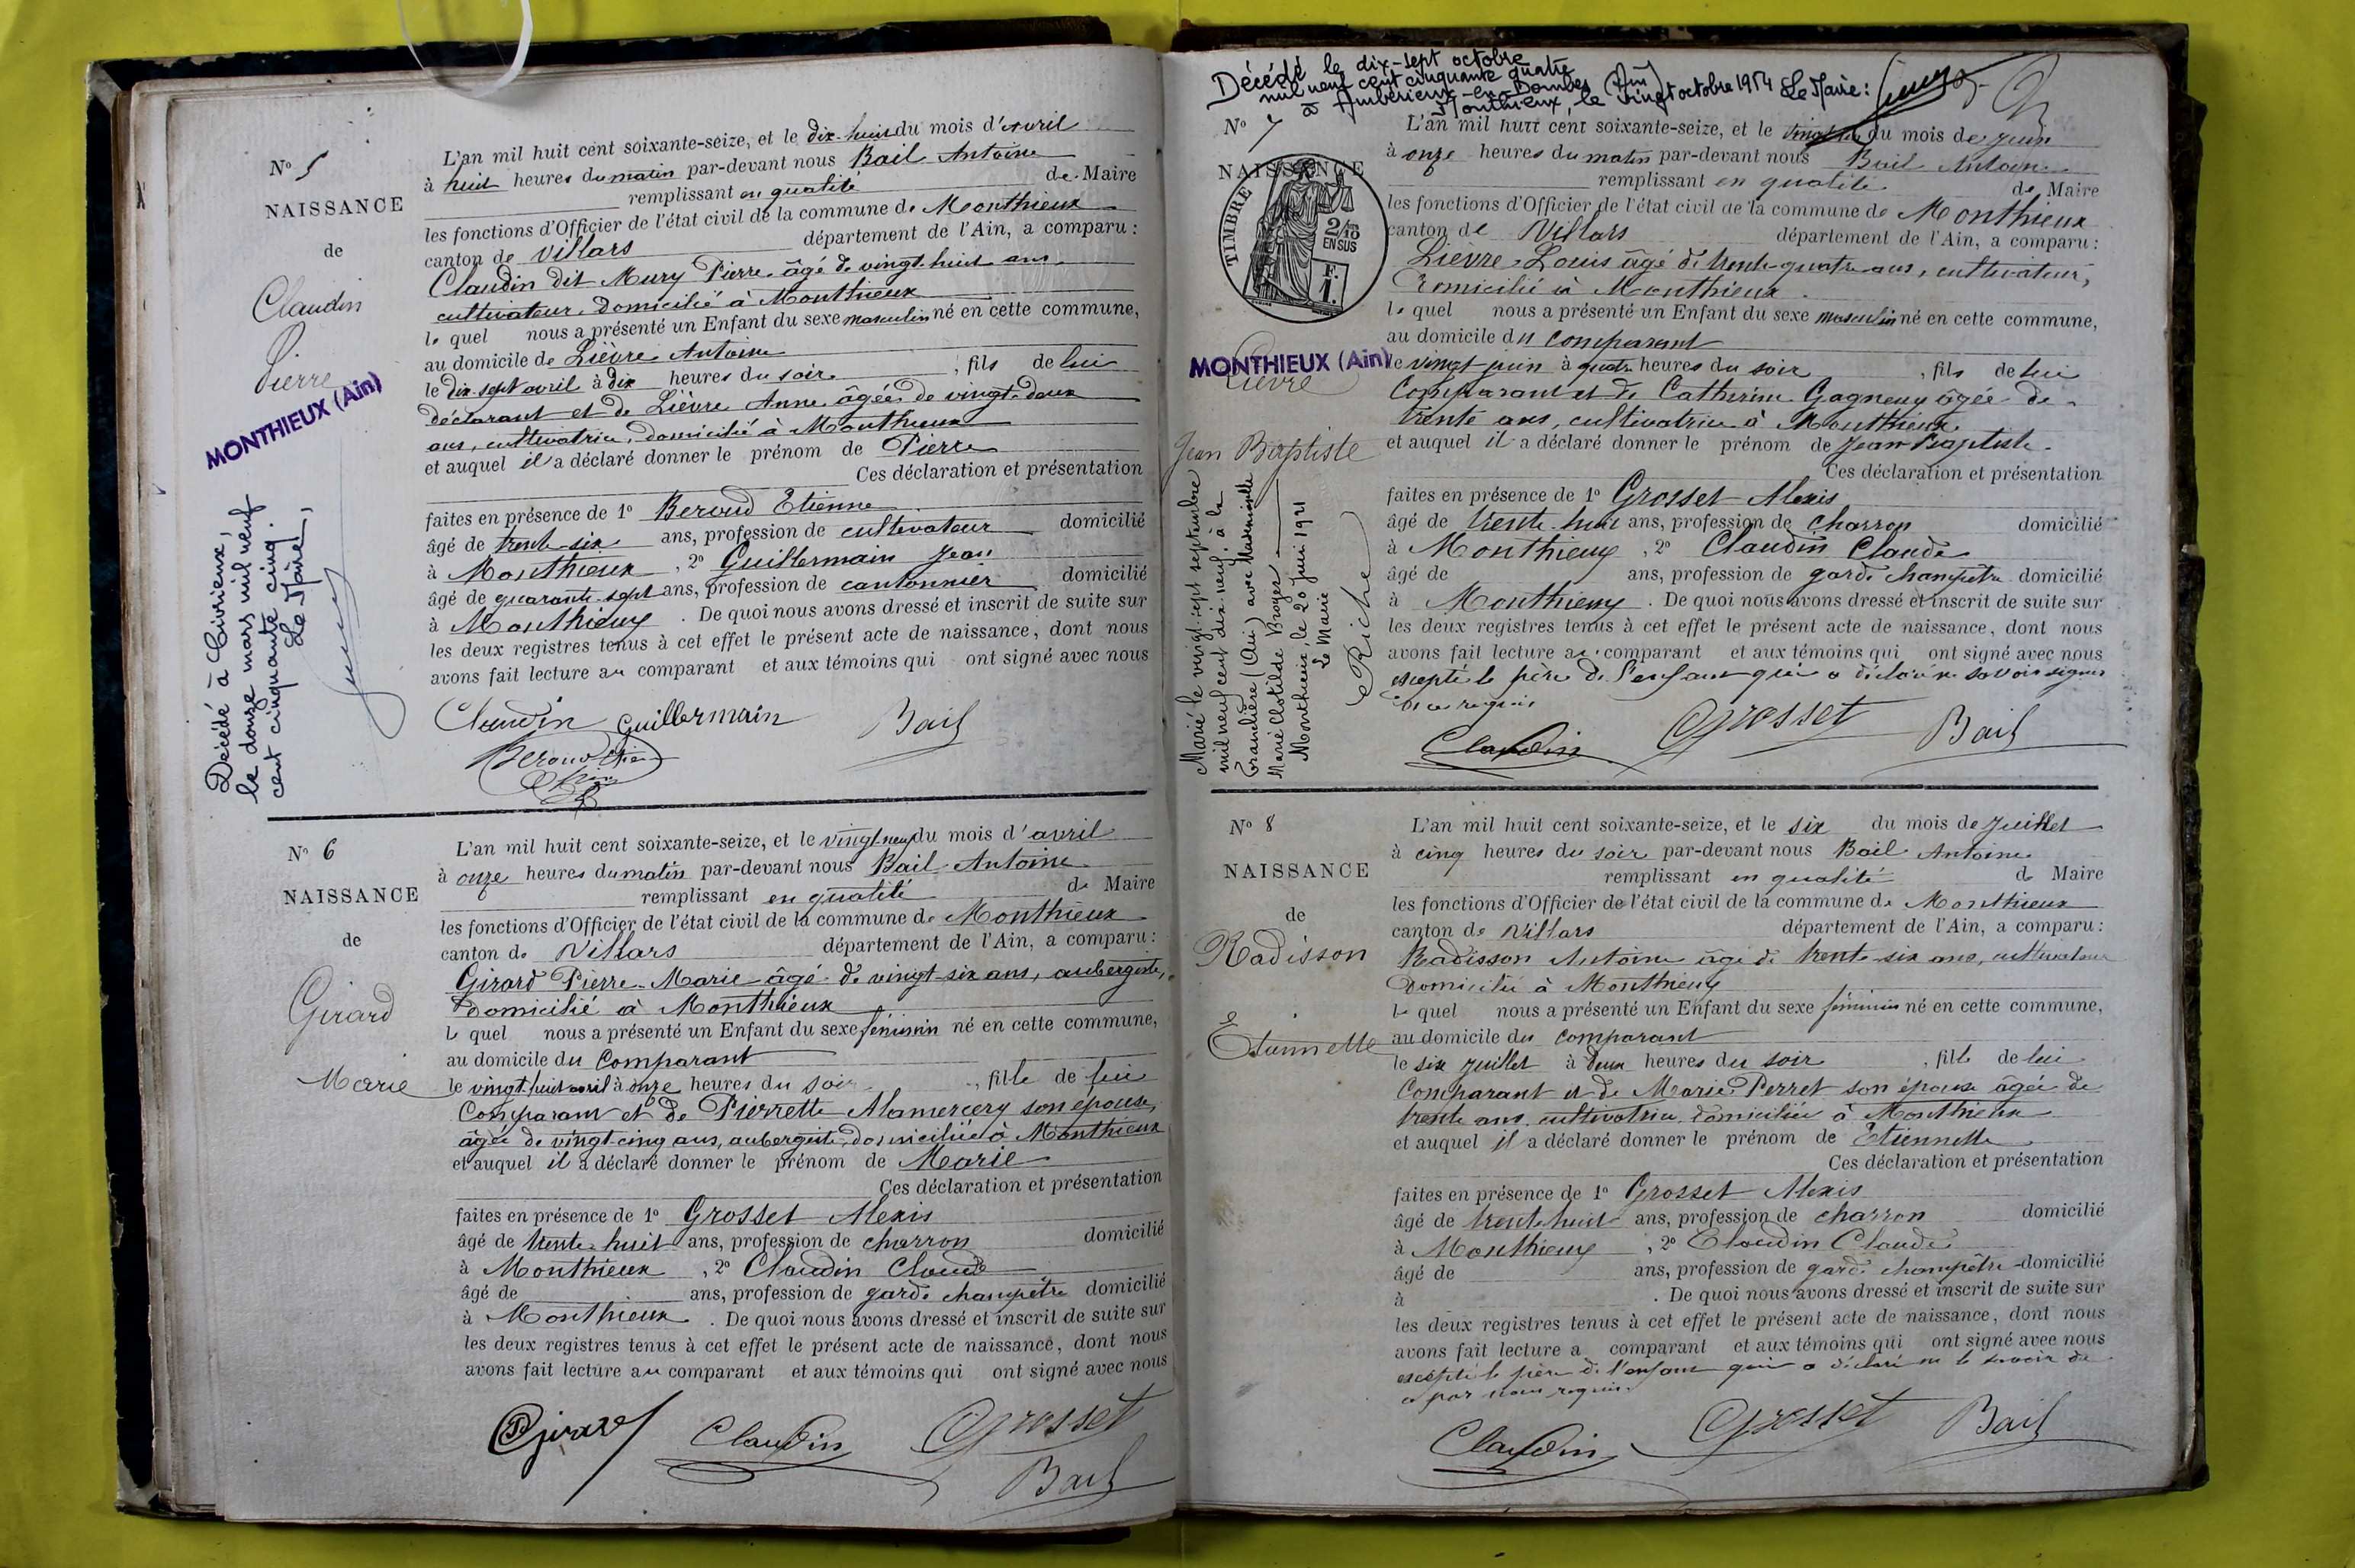 N° 5
NAISSANCE
de
Claudin
Pierre
MONTHIEUX (Ain)
Décédé à Civrieux,
le douze mars mil neuf
cent cinquante cinq.
Le Maire,
L'an mil huit cent soixante-seize, et le dix-huit du mois d'avril
à huit heures du matin par-devant nous Bail Antoine
remplissant en qualité de Maire
les fonctions d'Officier de l'état civil de la commune de Monthieux
canton de Villars département de l'Ain, a comparu :
Claudin dit Mury Pierre âgé de vingt-huit ans
cultivateur, domicilié à Monthieux
le quel nous a présenté un Enfant du sexe masculin né en cette commune,
au domicile de Lièvre Antoine
le dix-sept avril à dix heures du soir, fils de lui
déclarant et de Lièvre Anne âgée de vingt-deux
ans, cultivatrice, domicilié à Monthieux
et auquel il a déclaré donner le prénom de Pierre
Ces déclaration et présentation
faites en présence de 1° Beroud Etienne
âgé de trente-six ans, profession de cultivateur domicilié
à Monthieux, 2° Guillermain Jean
âgé de quarante-sept ans, profession de cantonnier domicilié
à Monthieux. De quoi nous avons dressé et inscrit de suite sur
les deux registres tenus à cet effet le présent acte de naissance, dont nous
avons fait lecture au comparant et aux témoins qui ont signé avec nous
Claudin Guillermain Bail
Beroud
N° 6
NAISSANCE
de
Girard
Marie
L'an mil huit cent soixante-seize, et le vingt neuf du mois d'avril
à onze heures du matin par-devant nous Bail Antoine
remplissant en qualité de Maire
les fonctions d'Officier de l'état civil de la commune de Monthieux
canton de Villars département de l'Ain, a comparu :
Girard Pierre-Marie âgé de vingt-six ans, aubergiste,
domicilié à Monthieux
le quel nous a présenté un Enfant du sexe féminin né en cette commune,
au domicile du Comparant
le vingt-huit avril à onze heures du soir, fille de lui
Comparant et de Pierrette Alamercery son épouse,
âgée de vingt-cinq ans, aubergiste, domiciliée à Monthieux
et auquel il a déclaré donner le prénom de Marie
Ces déclaration et présentation
faites en présence de 1° Grosset Alexis
âgé de trente-huit ans, profession de charron domicilié
à Monthieux, 2° Claudin Claude
âgé de ans, profession de garde champêtre domicilié
à Monthieux. De quoi nous avons dressé et inscrit de suite sur
les deux registres tenus à cet effet le présent acte de naissance, dont nous
avons fait lecture au comparant et aux témoins qui ont signé avec nous
Girard Claudin Grosset
Bail
Décédé le dix-sept octobre
mil neuf cent cinquante quatre
à Ambérieux-en-Dombes (Ain)
Monthieux, le vingt octobre 1954 Le Maire :
N° 7
NAISSANCE
TIMBRE
2/10
EN SUS
F.
1.
Lièvre
MONTHIEUX (Ain)
Jean Baptiste
Marié le vingt-sept septembre
mil neuf cent dix neuf à la
Tranclière (Ain) avec
Marie Clotilde Broyer
Monthieux, le 20 juin 1921
Le Maire
Riche
L'an mil huit cent soixante-seize, et le du mois de juin
à onze heures du matin par-devant nous Bail Antoine
remplissant en qualité de Maire
les fonctions d'Officier de l'état civil de la commune de Monthieux
canton de Villars département de l'Ain, a comparu :
Lièvre Louis âgé de trente-quatre ans, cultivateur,
domicilié à Monthieux.
le quel nous a présenté un Enfant du sexe masculin né en cette commune,
au domicile du comparant
le vingt juin à quatre heures du soir, fils de lui
Comparant et de Catherine Gagneux âgée de
trente ans, cultivatrice à Monthieux
et auquel il a déclaré donner le prénom de Jean-Baptiste
Ces déclaration et présentation
faites en présence de 1° Grosset Alexis
âgé de trente-huit ans, profession de charron domicilié
à Monthieux, 2° Claudin Claude
âgé de ans, profession de garde champêtre domicilié
à Monthieux. De quoi nous avons dressé et inscrit de suite sur
les deux registres tenus à cet effet le présent acte de naissance, dont nous
avons fait lecture au comparant et aux témoins qui ont signé avec nous
excepté le père de l'enfant qui a déclaré ne savoir signer
de ce requis
Claudin Grosset Bail
N° 8
NAISSANCE
de
Radisson
Etiennette
L'an mil huit cent soixante-seize, et le six du mois de juillet
à cinq heures du soir par-devant nous Bail Antoine
remplissant en qualité de Maire
les fonctions d'Officier de l'état civil de la commune de Monthieux
canton de Villars département de l'Ain, a comparu :
Radisson Antoine âgé de trente-six ans, cultivateur
domicilié à Monthieux
le quel nous a présenté un Enfant du sexe féminin né en cette commune,
au domicile du comparant
le six juillet à deux heures du soir, fille de lui
Comparant et de Marie Perret son épouse âgée de
trente ans, cultivatrice, domiciliée à Monthieux
et auquel il a déclaré donner le prénom de Etiennette
Ces déclaration et présentation
faites en présence de 1° Grosset Alexis
âgé de trente-huit ans, profession de charron domicilié
à Monthieux, 2° Claudin Claude
âgé de ans, profession de garde champêtre domicilié
à . De quoi nous avons dressé et inscrit de suite sur
les deux registres tenus à cet effet le présent acte de naissance, dont nous
avons fait lecture a comparant et aux témoins qui ont signé avec nous
excepté le père de l'enfant qui a déclaré ne le savoir de
ce par nous requis.
Claudin Grosset Bail